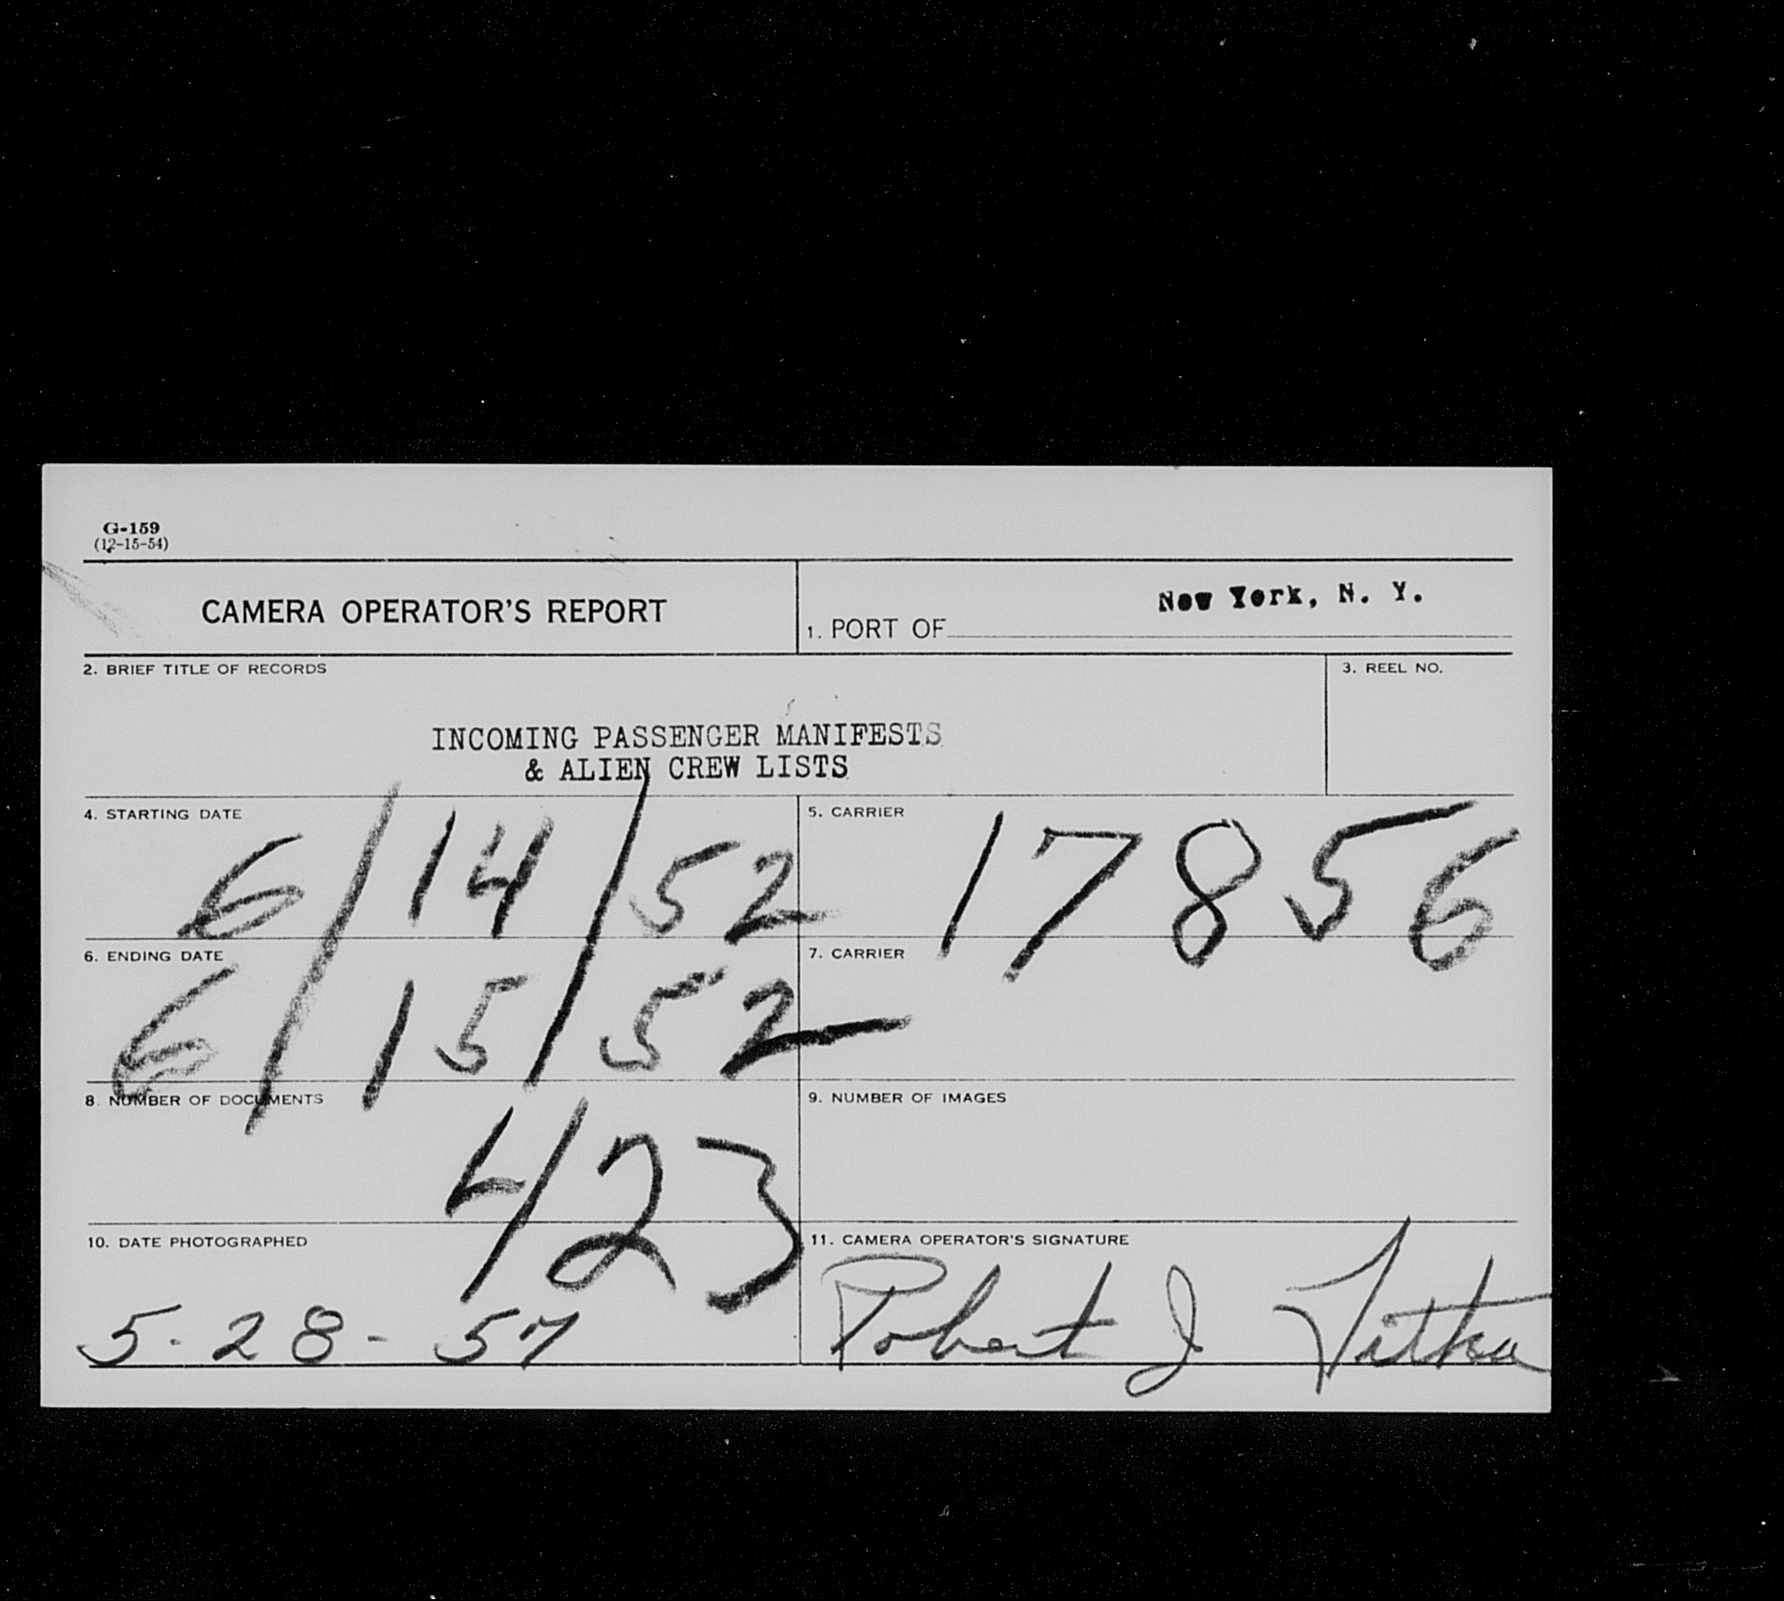 G-159
(12-15-54)
CAMERA OPERATOR'S REPORT
1. PORT OF New York, N. Y.
2. BRIEF TITLE OF RECORDS
3. REEL NO.
INCOMING PASSENGER MANIFESTS
& ALIEN CREW LISTS
4. STARTING DATE
6/14/52
5. CARRIER
17856
6. ENDING DATE
6/15/52
7. CARRIER
8. NUMBER OF DOCUMENTS
423
9. NUMBER OF IMAGES
10. DATE PHOTOGRAPHED
5-28-57
11. CAMERA OPERATOR'S SIGNATURE
Robert J